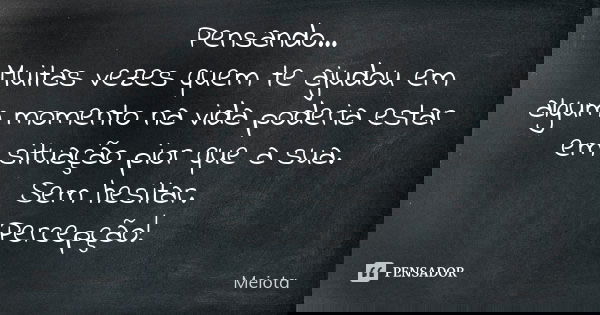 Pensando...
Muitas vezes quem te ajudou em
algum momento na vida poderia estar
em situação pior que a sua.
Sem hesitar.
Percepção!
Meiota
PENSADOR